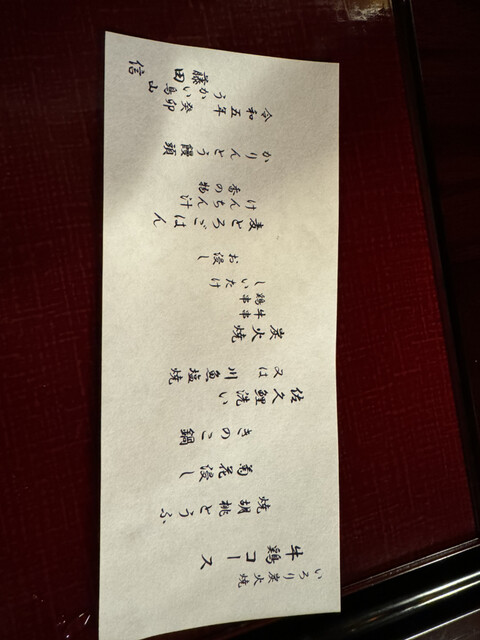 いろり炭火焼
牛鶏コース
焼胡桃とうふ
菊花浸し
きのこ鍋
佐久鯉洗い
又は川魚塩焼
炭火焼
牛串
鶏串
しいたけ
お浸し
麦とろごはん
けんちん汁
香の物
かりんとう饅頭
令和五年癸卯
うかい鳥山
藤田信